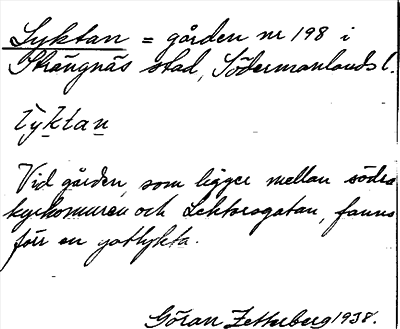 Lyktan = gården nr 198 i
Strängnäs stad, Södermanlands l.
lyktan
Vid gården, som ligger mellan södra
kyrkomuren och Lektorsgatan, fanns
förr en gatlykta.
Göran Zetterberg 1938.